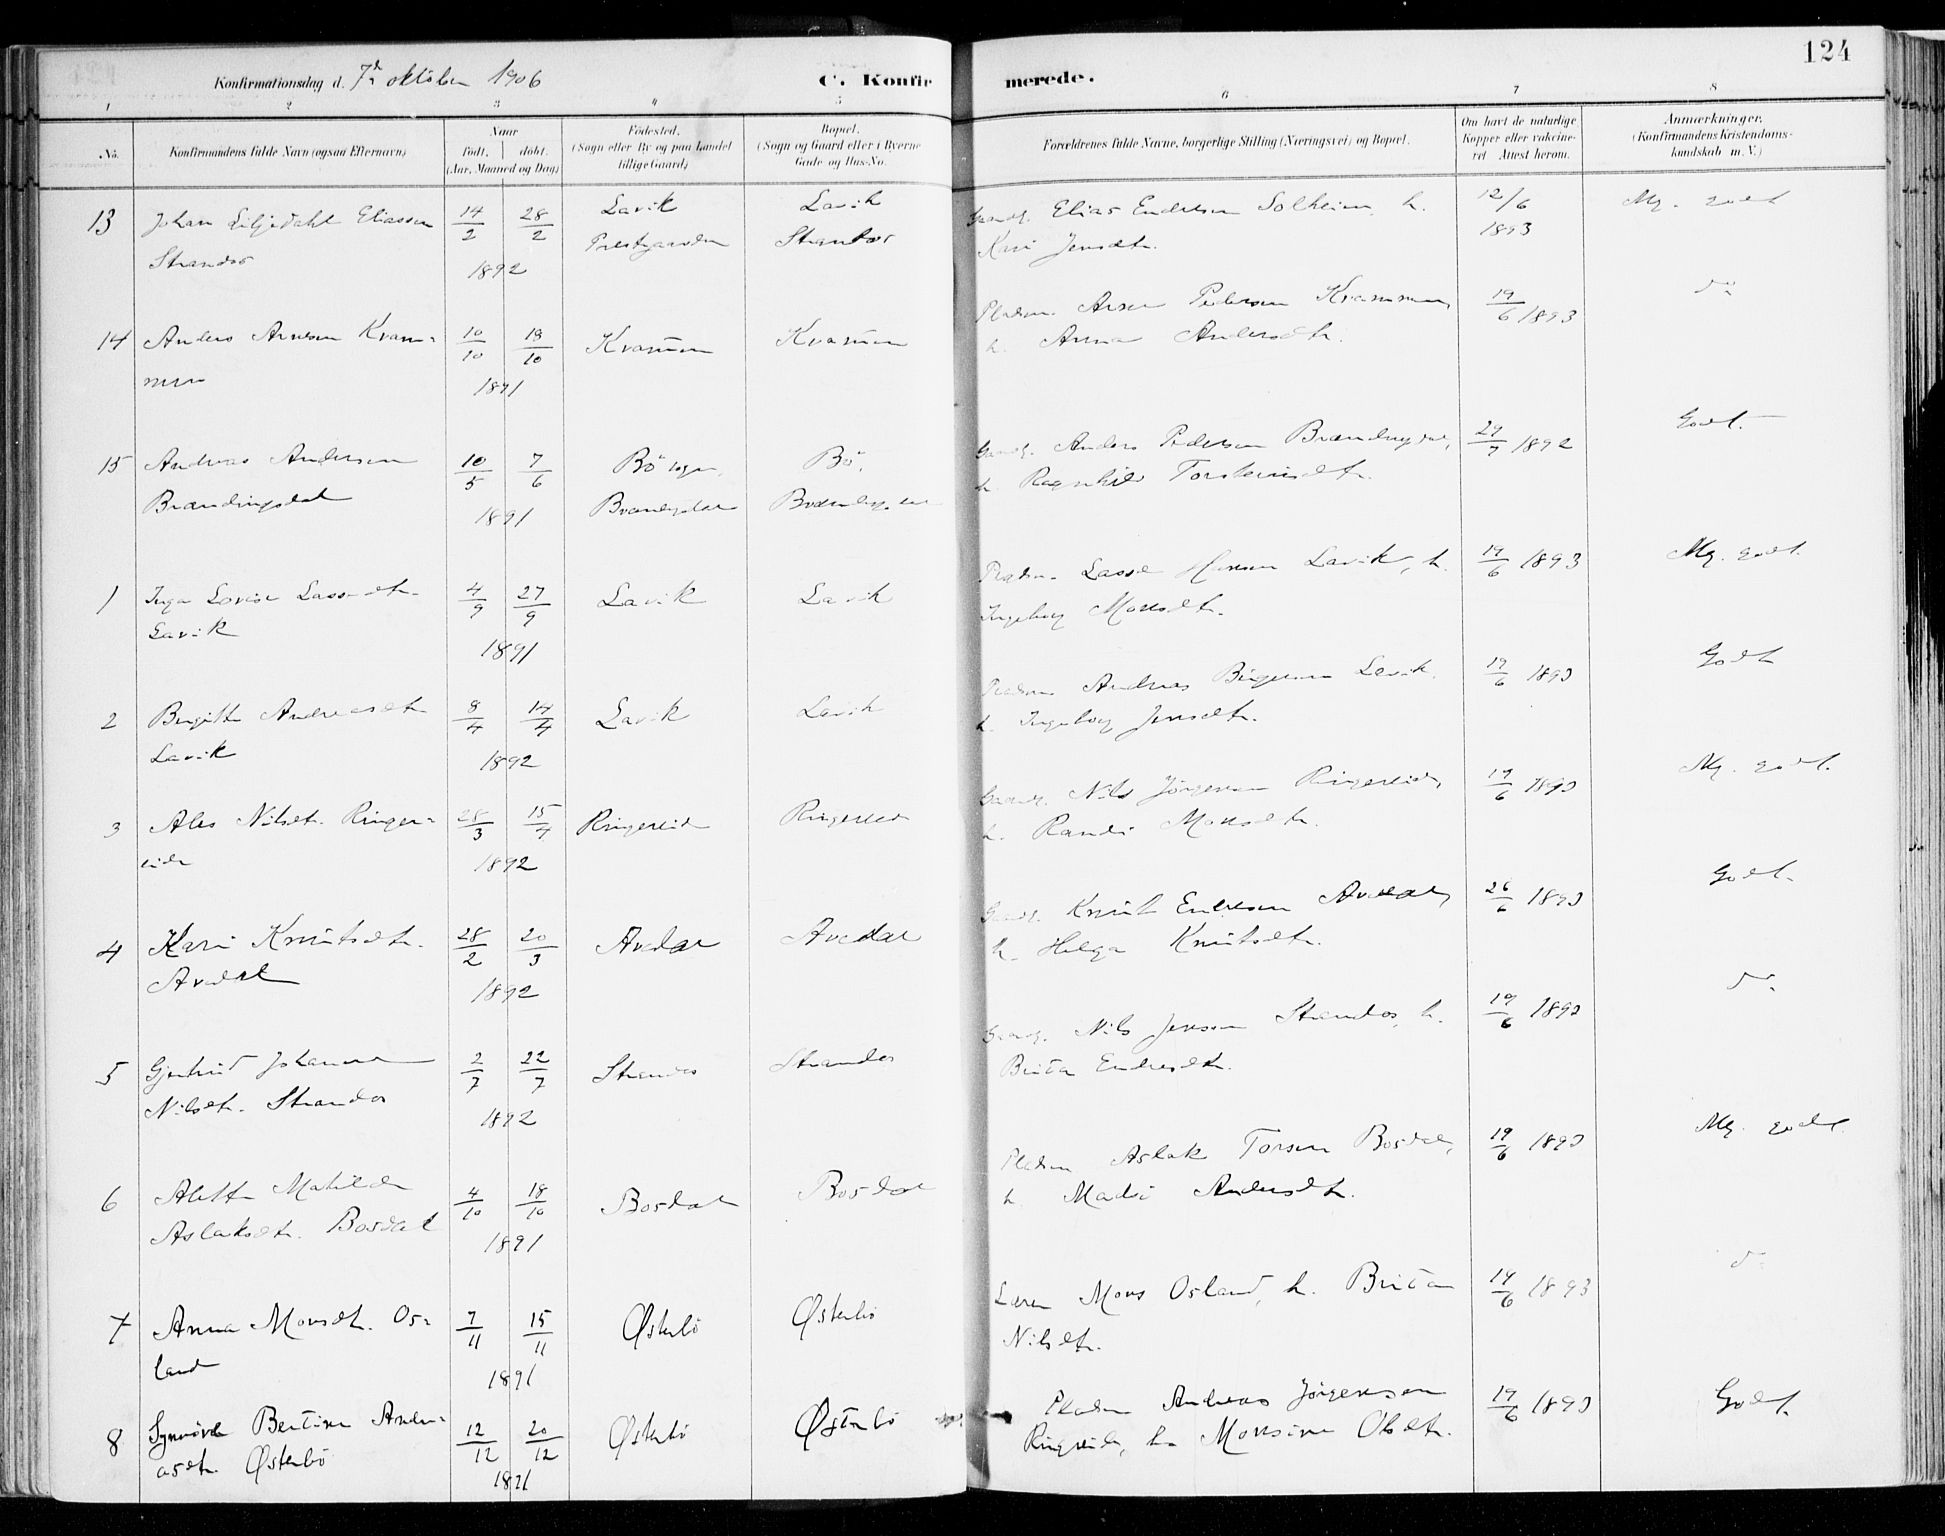 124
Konfirmationsdag d. 7de oktober 1906 C. Konfirmerede.
1 2 3 4 5 6 7 8
No. Konfirmandens fulde Navn (ogsaa Efternavn) Naar født, døbt. (Aar, Maaned og Dag) Fødested. (Sogn eller By og paa Landet tillige Gaard) Bopæl. (Sogn og Gaard eller i Byerne Gade og Hus-No. Forældrenes fulde Navne, borgerlige Stilling (Næringsvei) og Bopæl. Om havt de naturlige Kopper eller vaccineret Attest herom. Anmærkninger. (Konfirmandens Kristendomskundskab m. V.)
13 Johan Liljedahl Eliassen 14/2 28/2 Lavik Lavik Gaardr. Elias Endresen Solheim, h. 12/6 Mg. godt
Strandos 1892 Prestgaarden Strandos Kari Jensdtr. 1893
14 Anders Arnesen Kvam- 10/10 18/10 Kvammen Kvammen Pladsm. Arne Pedersen Kvammen, 19/6 1893 do
men 1891 h. Anna Andersdtr.
15 Andreas Andersen 10/5 7/6 Bö sogn, Bö, Gaardr. Anders Pedersen Brændingsdal, 29/7 1892 Godt.
Brændingsdal 1891 Brændingsdal Brændingsdal h. Ragnhild Torsteinsdtr.
1 Inga Lovise Lassedtr. 4/9 27/9 Lavik Lavik Pladsm. Lasse Hansen Lavik, h. 19/6 1893 Mg. godt.
Lavik 1891 Ingeborg Monsdtr.
2 Birgitte Andreasdtr. 8/4 14/4 Lavik Lavik Pladsm. Andreas Birgersen Lavik, 19/6 1893 Godt
Lavik 1892 h. Ingeborg Jensdtr.
3 Ales Nilsdtr. Ringer- 28/3 15/4 Ringereide Ringereide Gaardr. Nils Jörgensen Ringereide, 19/6 1893 Mg. godt.
eide 1892 h. Randi Monsdtr.
4 Kari Knutsdtr. 28/2 20/3 Avedal Avedal Gaardr. Knut Endresen Avedal, 26/6 1893 Godt.
Avedal 1892 h. Helga Knutsdtr.
5 Gjertrud Johanne 2/7 22/7 Strandos Strandos Gaardr. Nils Jensen Strandos, h. 19/6 1893 do
Nilsdtr. Strandos 1892 Brita Endresdtr.
6 Alette Matilde 4/10 18/10 Bosdal Bosdal Pladsm. Aslak Torsen Bosdal, 19/6 1893 Mg. godt.
Aslaksdtr. Bosdal 1891 h. Madsi Andersdtr.
7 Anna Monsdtr. Os- 7/11 15/11 Østerbö Østerbö Lærer Mons Osland, h. Brita 19/6 1893 do
land 1891 Nilsdtr.
8 Synnöve Bertine Andre- 12/12 20/12 Østerbö Østerbö Pladsm. Andreas Jörgensen 19/6 1893 Godt.
asdtr. Østerbö 1891 Ringereide, h. Monsine Olsdtr.